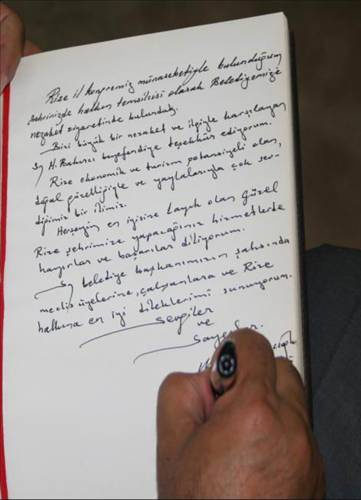 Rize il kongremiz münasebetiyle bulunduğum
şehrinizde halkın temsilcisi olarak Belediyemize
nezaket ziyaretinde bulunduk.
Bizi büyük bir nezaket ve ilgiyle karşılayan
Sy H. Bakırcı beyefendiye teşekkür ediyorum.
Rize ekonomik ve turizm potansiyeli olan,
doğal güzelliğiyle ve yaylalarıyla çok sev-
diğimiz bir ilimiz.
Herşeyin en iyisine layık olan güzel
Rize şehrimize yapacağınız hizmetlerde
hayırlar ve başarılar diliyorum.
Sy belediye başkanımızın şahsında
meclis üyelerine, çalışanlara ve Rize
halkına en iyi dileklerimi sunuyorum.
Sevgiler
ve
Saygılar.